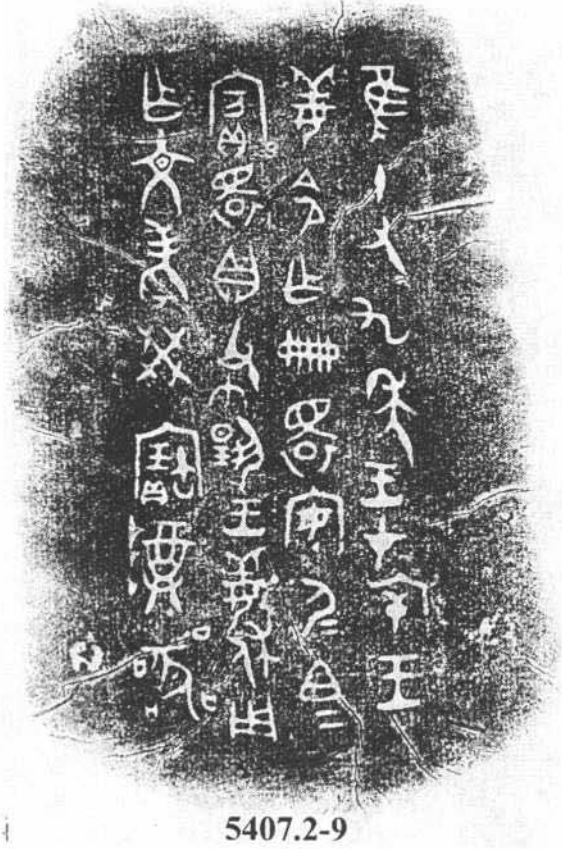 隹十又九年王才厈王
姜令乍冊睘安尸=白=
賓睘貝布揚王姜休用
乍文考癸寶尊器
5407.2-9